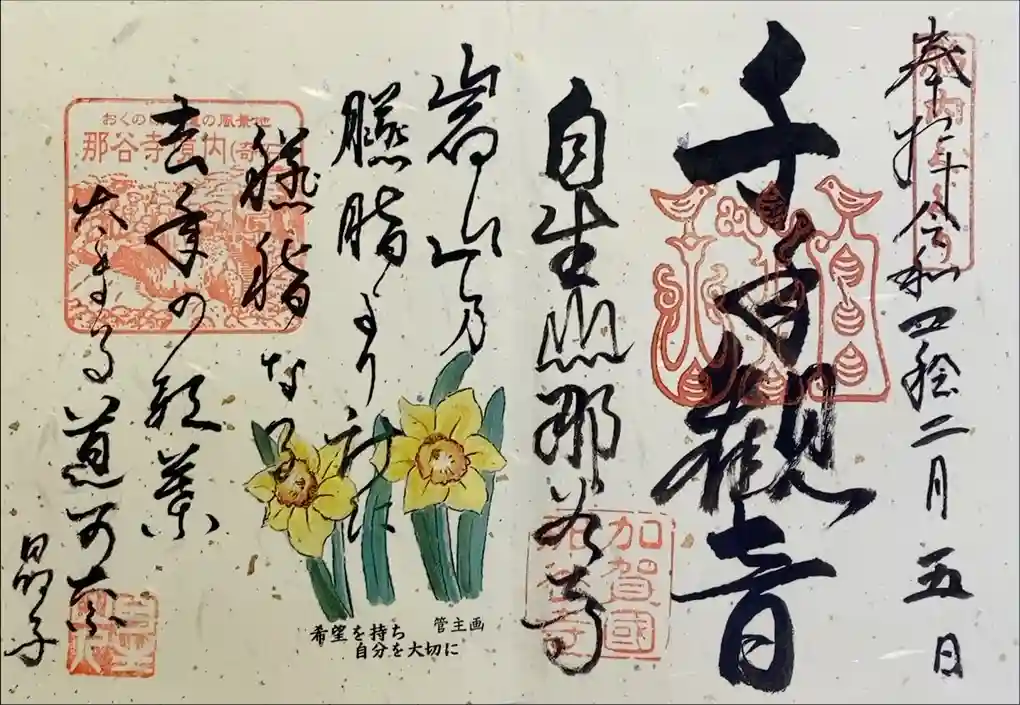 奉拝 令和四稔二月五日
千手観音
自生山那谷寺
加賀國
那谷寺
岩山乃
臙脂よりけに
臙脂なる
去年の紅葉
太まる道可奈
晶子
おくのほそ道の風景地
那谷寺境内(奇石)
希望を持ち
自分を大切に
管主画